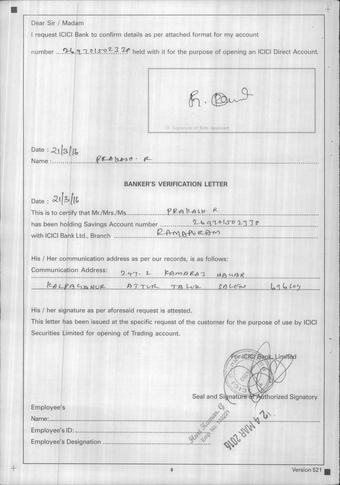 Dear Sir / Madam
I request ICICI Bank to confirm details as per attached format for my account
number 269701502338 held with it for the purpose of opening an ICICI Direct Account.
Signature of Sole Applicant
Date : 21/3/16
Name : PRAKASH . R
BANKER'S VERIFICATION LETTER
Date : 21/3/16
This is to certify that Mr./Mrs./Ms. PRAKASH R
has been holding Savings Account number 269701502338
with ICICI Bank Ltd., Branch RAMAPURAM
His / Her communication address as per our records, is as follows:
Communication Address: 247. 2 KAMARAJ NAGAR
KALPAGANUR ATTUR TALUK SALEM
His / her signature as per aforesaid request is attested.
This letter has been issued at the specific request of the customer for the purpose of use by ICICI
Securities Limited for opening of Trading account.
For ICICI Bank Limited
Seal and Signature of Authorized Signatory
24 MAR 2016
Employee's
Name:
Employee's ID:
Employee's Designation
8
Version 521